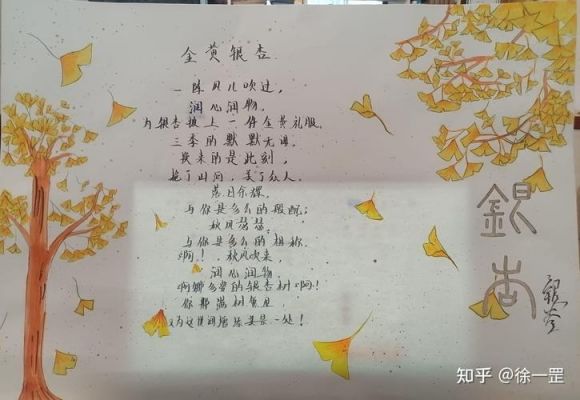 金黄银杏
一阵风儿吹过,
润心润物,
为银杏披上一件金黄礼服。
三季的默默无语,
换来的是此刻,
艳了山河,美了众人。
落日余辉,
与你是多么的般配;
秋风瑟瑟,
与你是多么的相称,
啊!秋风吹来,
润心润物
婀娜多姿的银杏树啊!
你那满树
又为这世间增添美景一处!
銀杏
银杏
知乎 @徐一罡